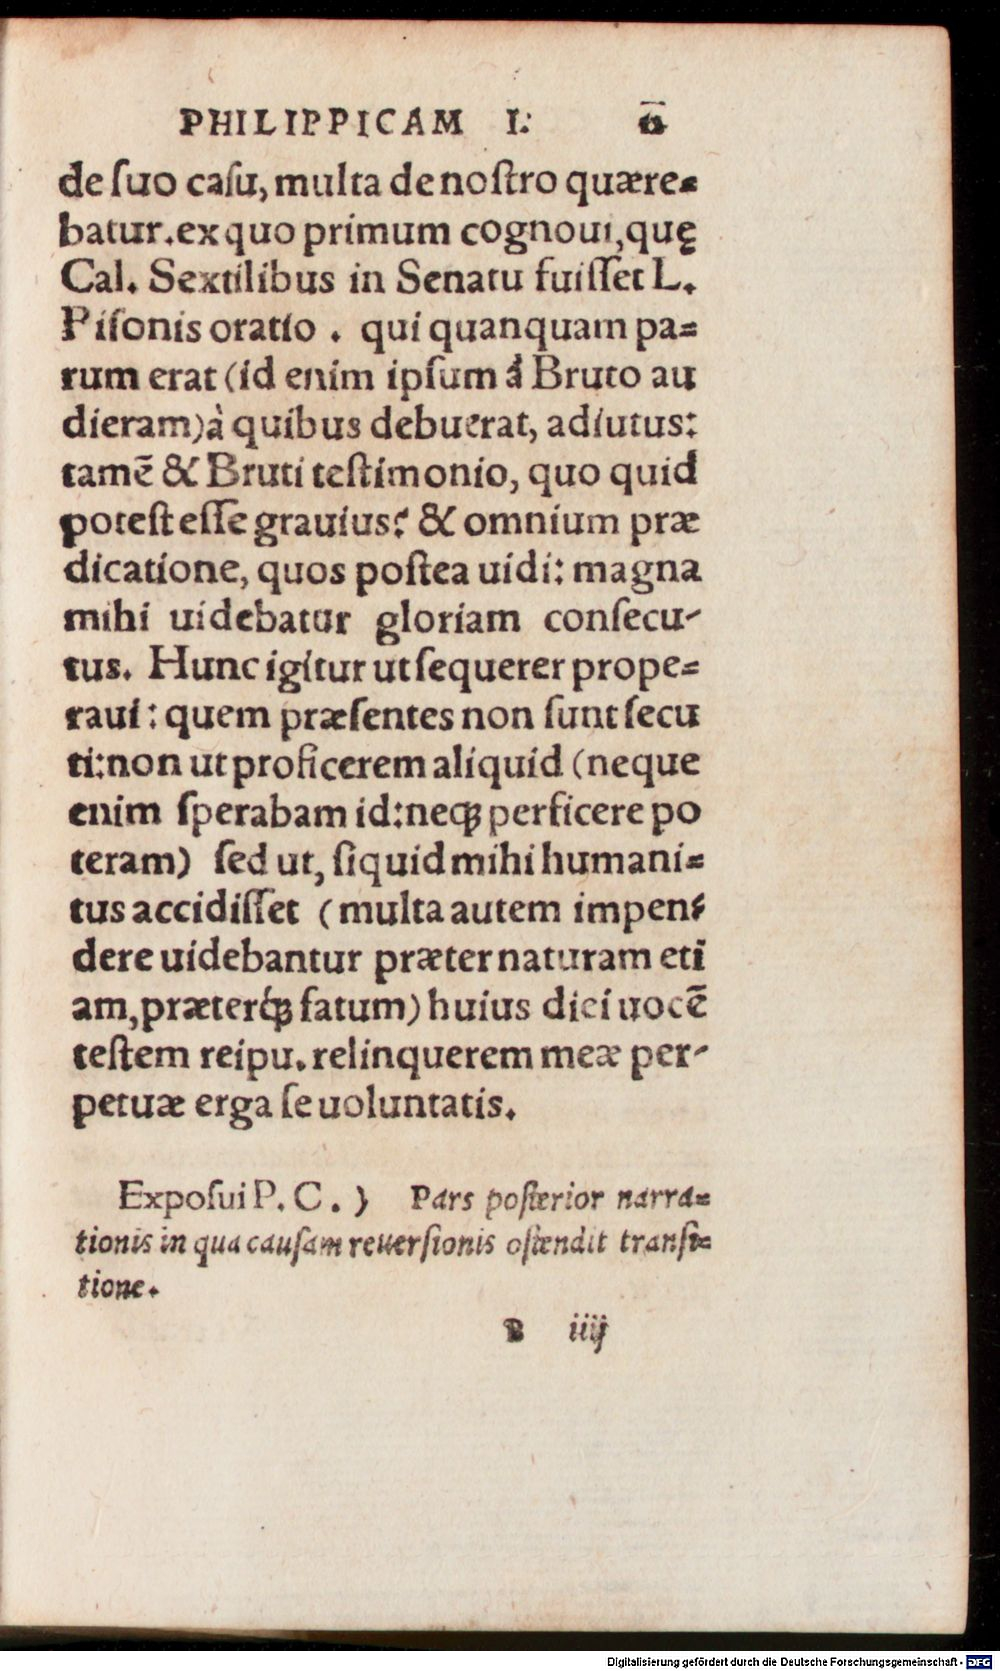 PHILIPPICAM I.
de ſuo caſu, multa de noſtro quære-
batur. ex quo primum cognoui, quę
Cal. Sextilibus in Senatu fuiſſet L.
Piſonis oratio . qui quanquam pa-
rum erat (id enim ipſum á Bruto au
dieram) à quibus debuerat, adiutus:
tamē & Bruti teſtimonio, quo quid
poteſt eſſe grauius? & omnium præ
dicatione, quos poſtea uidi: magna
mihi uidebatur gloriam conſecu-
tus. Hunc igitur ut ſequerer prope-
raui: quem præſentes non ſunt ſecu
ti: non ut proficerem aliquid (neque
enim ſperabam id: neqꝫ perficere po
teram) ſed ut, ſi quid mihi humani-
tus accidiſſet (multa autem impen-
dere uidebantur præter naturam eti
am, præterqꝫ fatum) huius diei uocē
teſtem reipu. relinquerem meæ per-
petuæ erga ſe uoluntatis.
Expoſui P. C. ) Pars poſterior narra-
tionis in qua cauſam reuerſionis oſtendit tranſi-
tione.
B iiij
Digitalisierung gefördert durch die Deutsche Forschungsgemeinschaft - DFG